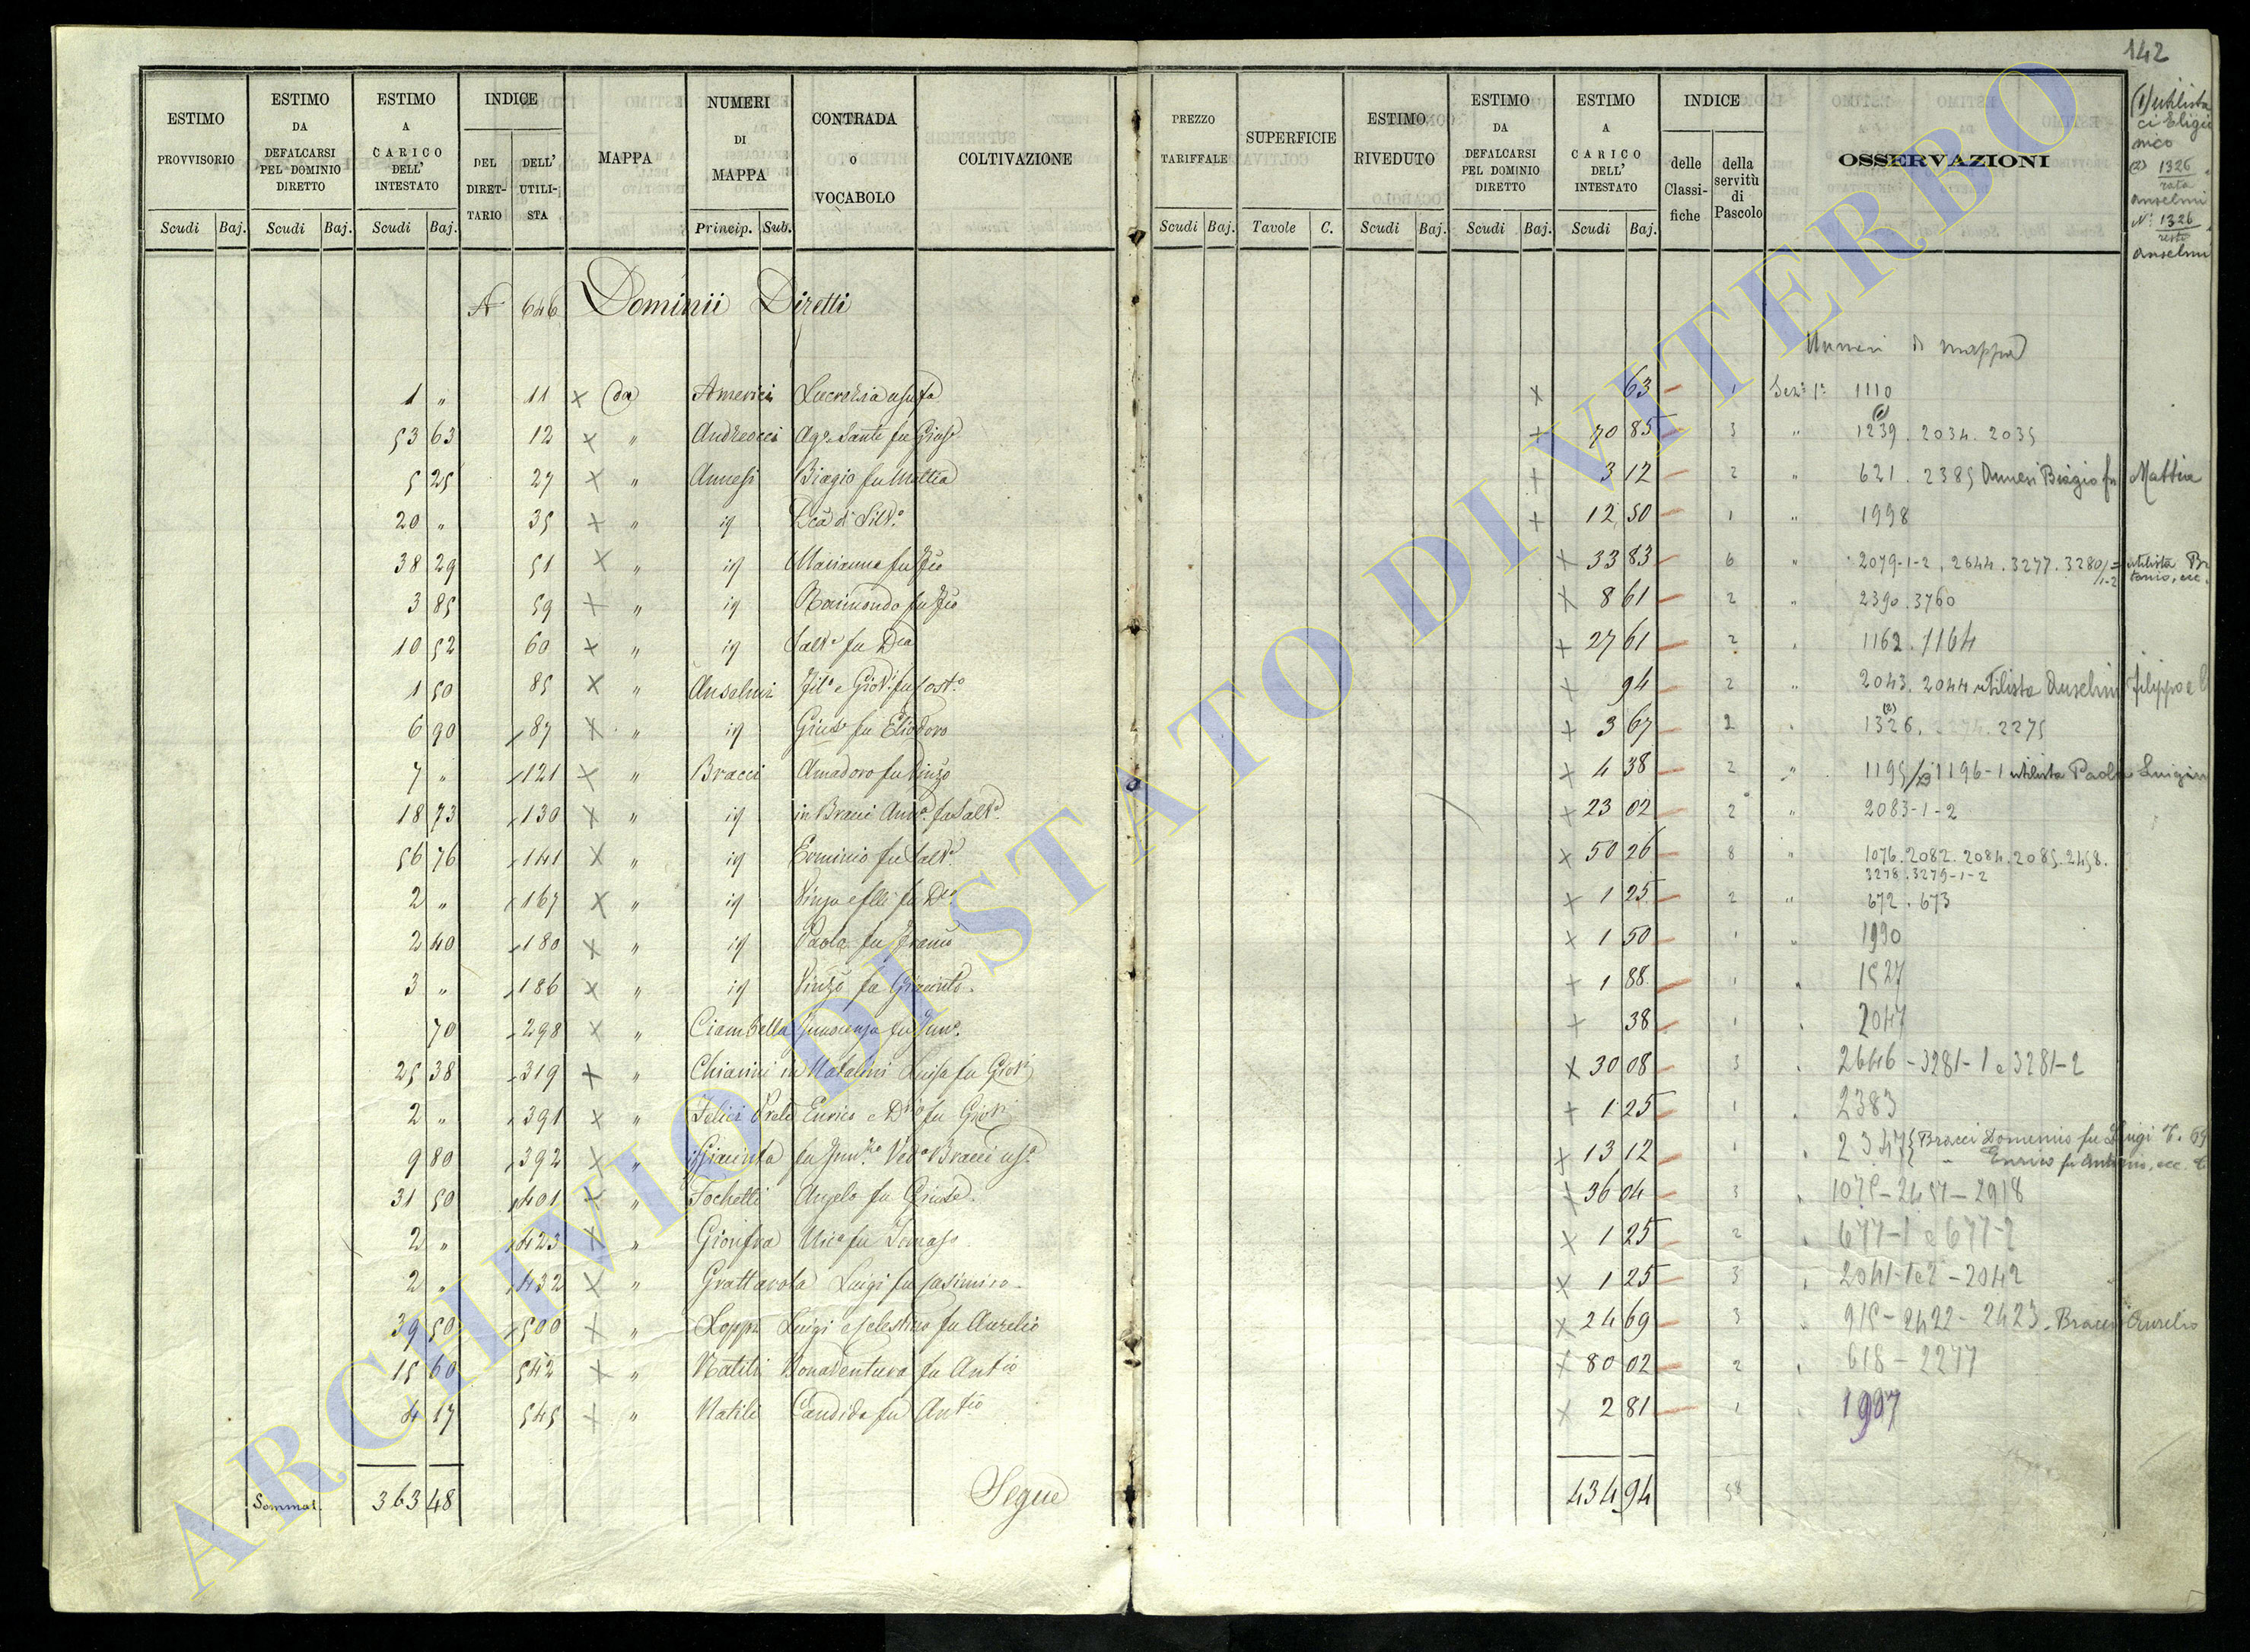 142
ESTIMO PROVVISORIO
ESTIMO DA DEFALCARSI PEL DOMINIO DIRETTO
ESTIMO A CARICO DELL' INTESTATO
INDICE
DEL DIRETTARIO
DELL' UTILISTA
MAPPA
NUMERI DI MAPPA
CONTRADA O VOCABOLO
COLTIVAZIONE
Scudi Baj. Scudi Baj. Scudi Baj. Princip. Sub.
PREZZO TARIFFALE
SUPERFICIE
ESTIMO RIVEDUTO
ESTIMO DA DEFALCARSI PEL DOMINIO DIRETTO
ESTIMO A CARICO DELL' INTESTATO
INDICE
delle Classifiche
della servitù di Pascolo
OSSERVAZIONI
Scudi Baj. Tavole C. Scudi Baj. Scudi Baj. Scudi Baj.
(1) utilista
(2) 1326
rata
anselmi
N: 1326
resto
anselmi
A 646 Dominii Diretti
Numeri di mappa
1 " 11 x (da) Americi Lucrezia x 63 1 Sez: 1: 1110
53 63 12 x " Andreocci Santi fu x 70 85 3 " (1) 1239. 2034. 2035
5 25 27 x " Annesi Biagio fu Mattia x 3 12 2 " 621. 2385 Annesi Biagio fu Mattia
20 " 35 x " id x 12 50 1 " 1998
38 29 51 x " id Marianna fu x 33 83 6 " 2079-1-2. 2644. 3277. 3280/1-2 utilista
3 85 59 x " id Raimondo fu x 8 61 2 " 2390. 3760
10 52 60 x " id fu x 27 61 2 " 1162. 1164
1 50 85 x " Anselmi e Giov: fu x 94 2 " 2043. 2044 utilista Anselmi filippo e
6 90 87 x " id fu Eliodoro x 3 67 2 " (2) 1326. 2274. 2275
7 " 121 x " Bracci Amadoro fu x 4 38 2 " 1195/B 1196-1 utilista Paola Luigia
18 73 130 x " id in Bracci x 23 02 2 " 2083-1-2
56 76 141 x " id Erminio fu x 50 26 8 " 1076. 2082. 2084. 2085. 2458.
3278. 3279-1-2
2 " 167 x " id x 1 25 2 " 672. 673
2 40 180 x " id Paola fu x 1 50 1 " 1990
3 " 186 x " id fu Giacinto x 1 88 1 " 1527
70 298 x " Ciambella fu x 38 1 " 2047
25 38 319 x " Chiarini in Natalini Luisa fu Giov: x 30 08 3 " 2646-3281-1 e 3281-2
2 " 391 x " Felici Enrico e fu Giov: x 1 25 1 " 2383
9 80 392 x " id Giacinta fu Ved: Bracci x 13 12 1 " 2347 { Bracci Domenico fu Luigi
Enrico fu Antonio, ecc.
31 50 401 x " Fochetti Angelo fu x 36 04 3 " 1075-2457-2918
2 " 423 x " fu Tomaso x 1 25 2 " 677-1 e 677-2
2 " 432 x " Grattarola Luigi fu Casimiro x 1 25 3 " 2041-1 e 2-2042
39 50 500 x " Loppi Luigi e Celestino fu Aurelio x 24 69 3 " 915-2422-2423. Bracci Aurelio
15 60 542 x " Natili Bonaventura fu Antio x 80 02 2 " 618-2277
4 17 545 x " Natili Candida fu Antio x 2 81 1 " 1997
Sommat. 363 48 Segue 434 94 58
ARCHIVIO DI STATO DI VITERBO